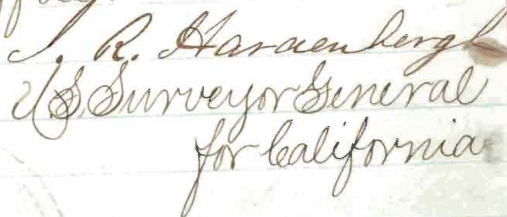 J. R. Hardenbergh
US Surveyor General
for California